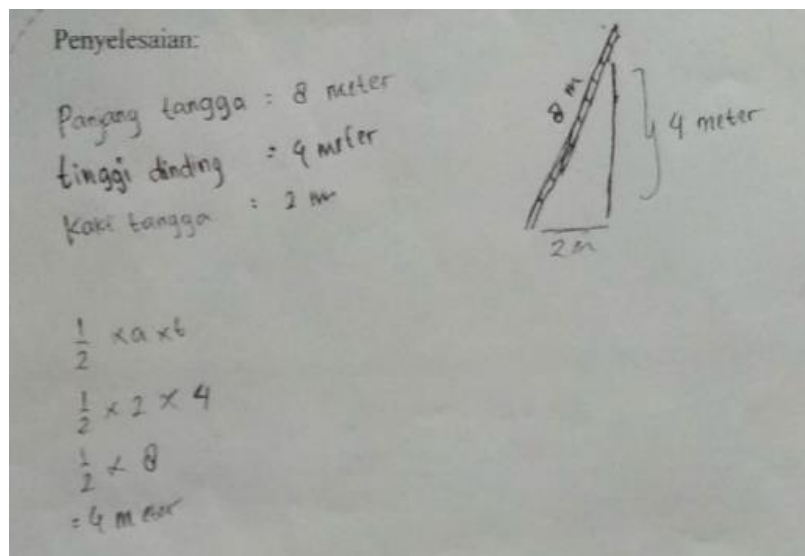 Penyelesaian:
Panjang tangga = 8 meter
tinggi dinding = 4 meter
Kaki tangga : 2 m
8 m
4 meter
2 m
1/2 x a x t
1/2 x 2 x 4
1/2 x 8
= 4 meter